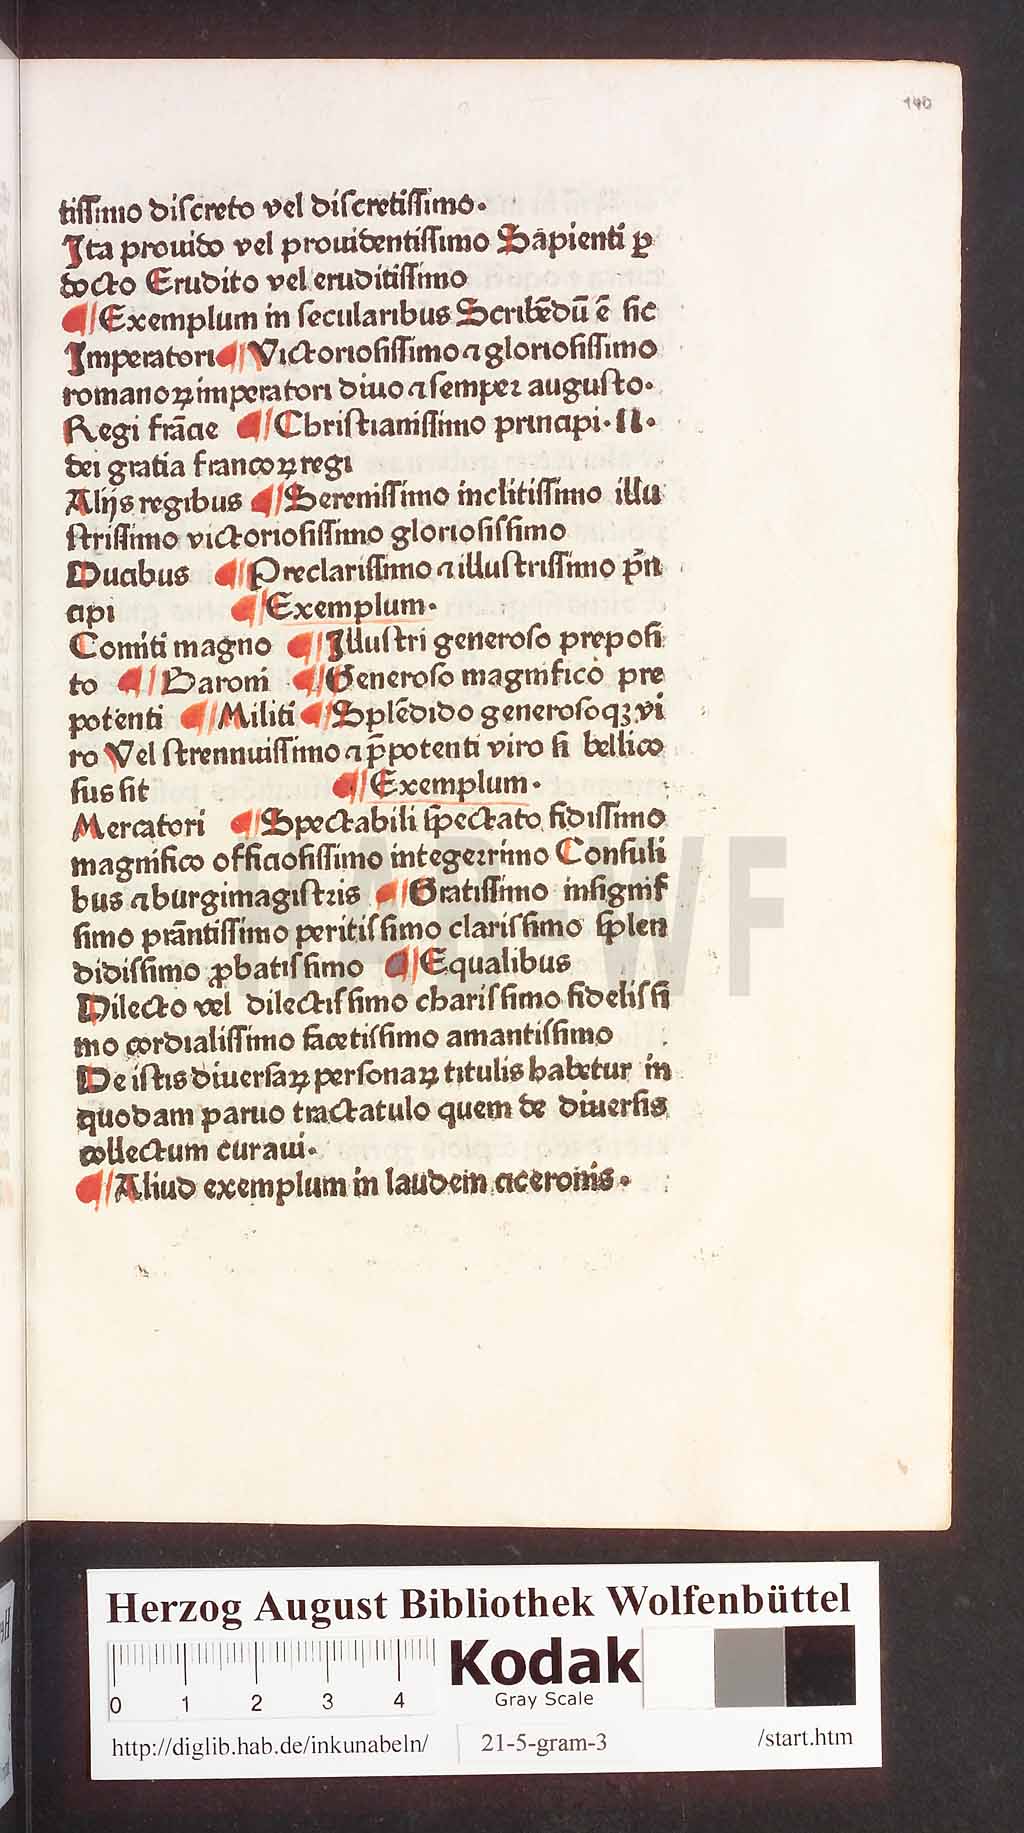 140
tissimo discreto vel discretissimo.
Ita prouido vel prouidentissimo Sāpienti ꝑ
docto Erudito vel eruditissimo
¶ Exemplum in secularibus Scribēdū ē sic
Imperatori ¶ Victoriosissimo ⁊ gloriosissimo
romanoꝝ imperatori diuo ⁊ semper augusto.
Regi frācie ¶ Christianissimo principi. N.
dei gratia francoꝝ regi
Alijs regibus ¶ Serenissimo inclitissimo illu
strissimo victoriosissimo gloriosissimo
Ducibus ¶ Preclarissimo ⁊ illustrissimo p̄n
cipi ¶ Exemplum.
Comiti magno ¶ Illustri generoso preposi
to ¶ Baroni ¶ Generoso magnifico pre
potenti ¶ Militi ¶ Splēdido generosoqꝫ vi
ro Vel strennuissimo ⁊ p̄potenti viro si bellico
sus sit ¶ Exemplum.
Mercatori ¶ Spectabili sp̄ectato fidissimo
magnifico officiosissimo integerrimo Consuli
bus ⁊ burgimagistris ¶ Gratissimo insignis
simo prāntissimo peritissimo clarissimo splen
didissimo ꝓbatissimo ¶ Equalibus
Dilecto vel dilectissimo charissimo fidelissi
mo cordialissimo facetissimo amantissimo
De istis diuersaꝝ personaꝝ titulis habetur in
quodam paruo tractatulo quem de diuersis
collectum curaui.
¶ Aliud exemplum in laudem ciceronis.
HAB WF
Herzog August Bibliothek Wolfenbüttel
0 1 2 3 4
Kodak
Gray Scale
http://diglib.hab.de/inkunabeln/ 21-5-gram-3 /start.htm